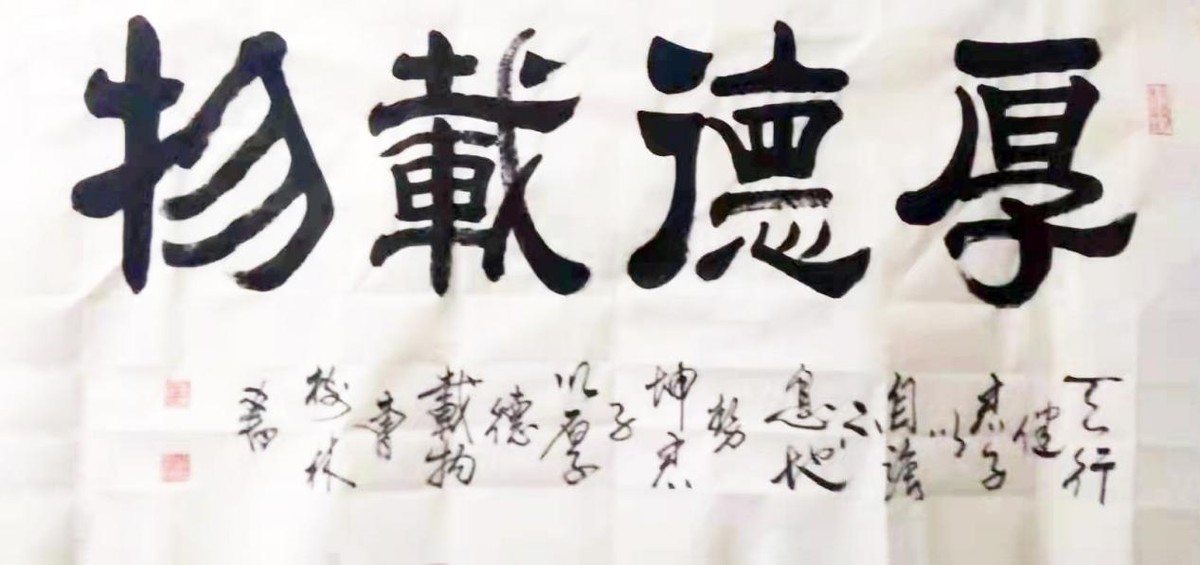 厚德載物
天行
健
君子
以
自強
不
息地
勢
坤君
子
以厚
德
載物
林
書